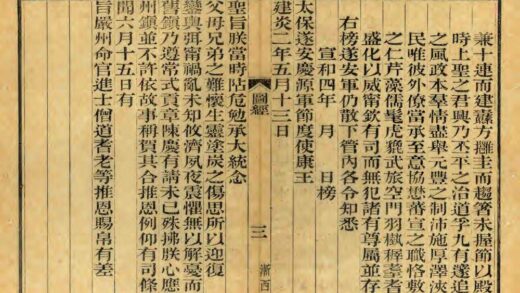 兼十連而建纛方擁圭而趨未握節以殿
時上聖之君興乃丕平之治道孚九有遂追
之風政本羣情盡舉元豐之制沛施厚澤浹
民唯彼外僚當承至意協懋蕃宣之職恪敷
之仁芹藻儒髦虎貔武旅空門羽嶽釋耋耆
盛化以威甯欽有司而無犯諸有尊屬並存
右榜遂安軍仍散下管內各令知悉
宣和四年 月 日榜
太保遂安慶源軍節度使康王
建炎二年五月十三日
圖經 三 浙西
聖旨朕當時阽危勉承大統念
父母兄弟之難懷生靈塗炭之傷思所以迎復
鑾輿弭甯禍亂未知攸濟夙夜震懼無以解憂而
舊鎮乃遵常式貢章陳慶有請未已殊拂朕心應
州鎮並不許依故事稱賀其合推恩例仰有司條
閏六月十五日有
旨嚴州命官進士僧道耆老等推恩賜帛有差